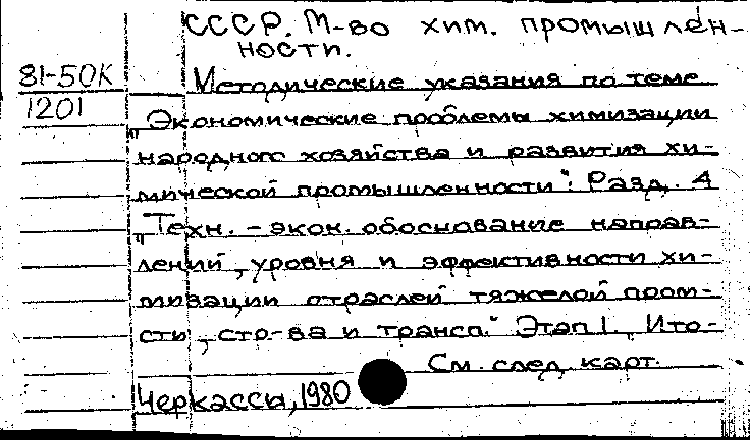 СССР. М-во хим. промышлен-
ности.
81-50К
1201
Методические указания по теме
"Экономические проблемы химизации
народного хозяйства и развития хи-
мической промышленности": Разд. 4
"Техн.-экон. обоснование направ-
лений, уровня и эффективности хи-
мизации отраслей тяжелой пром-
сти, стр-ва и трансп." Этап 1. Ито-
См. след. карт.
Черкассы, 1980